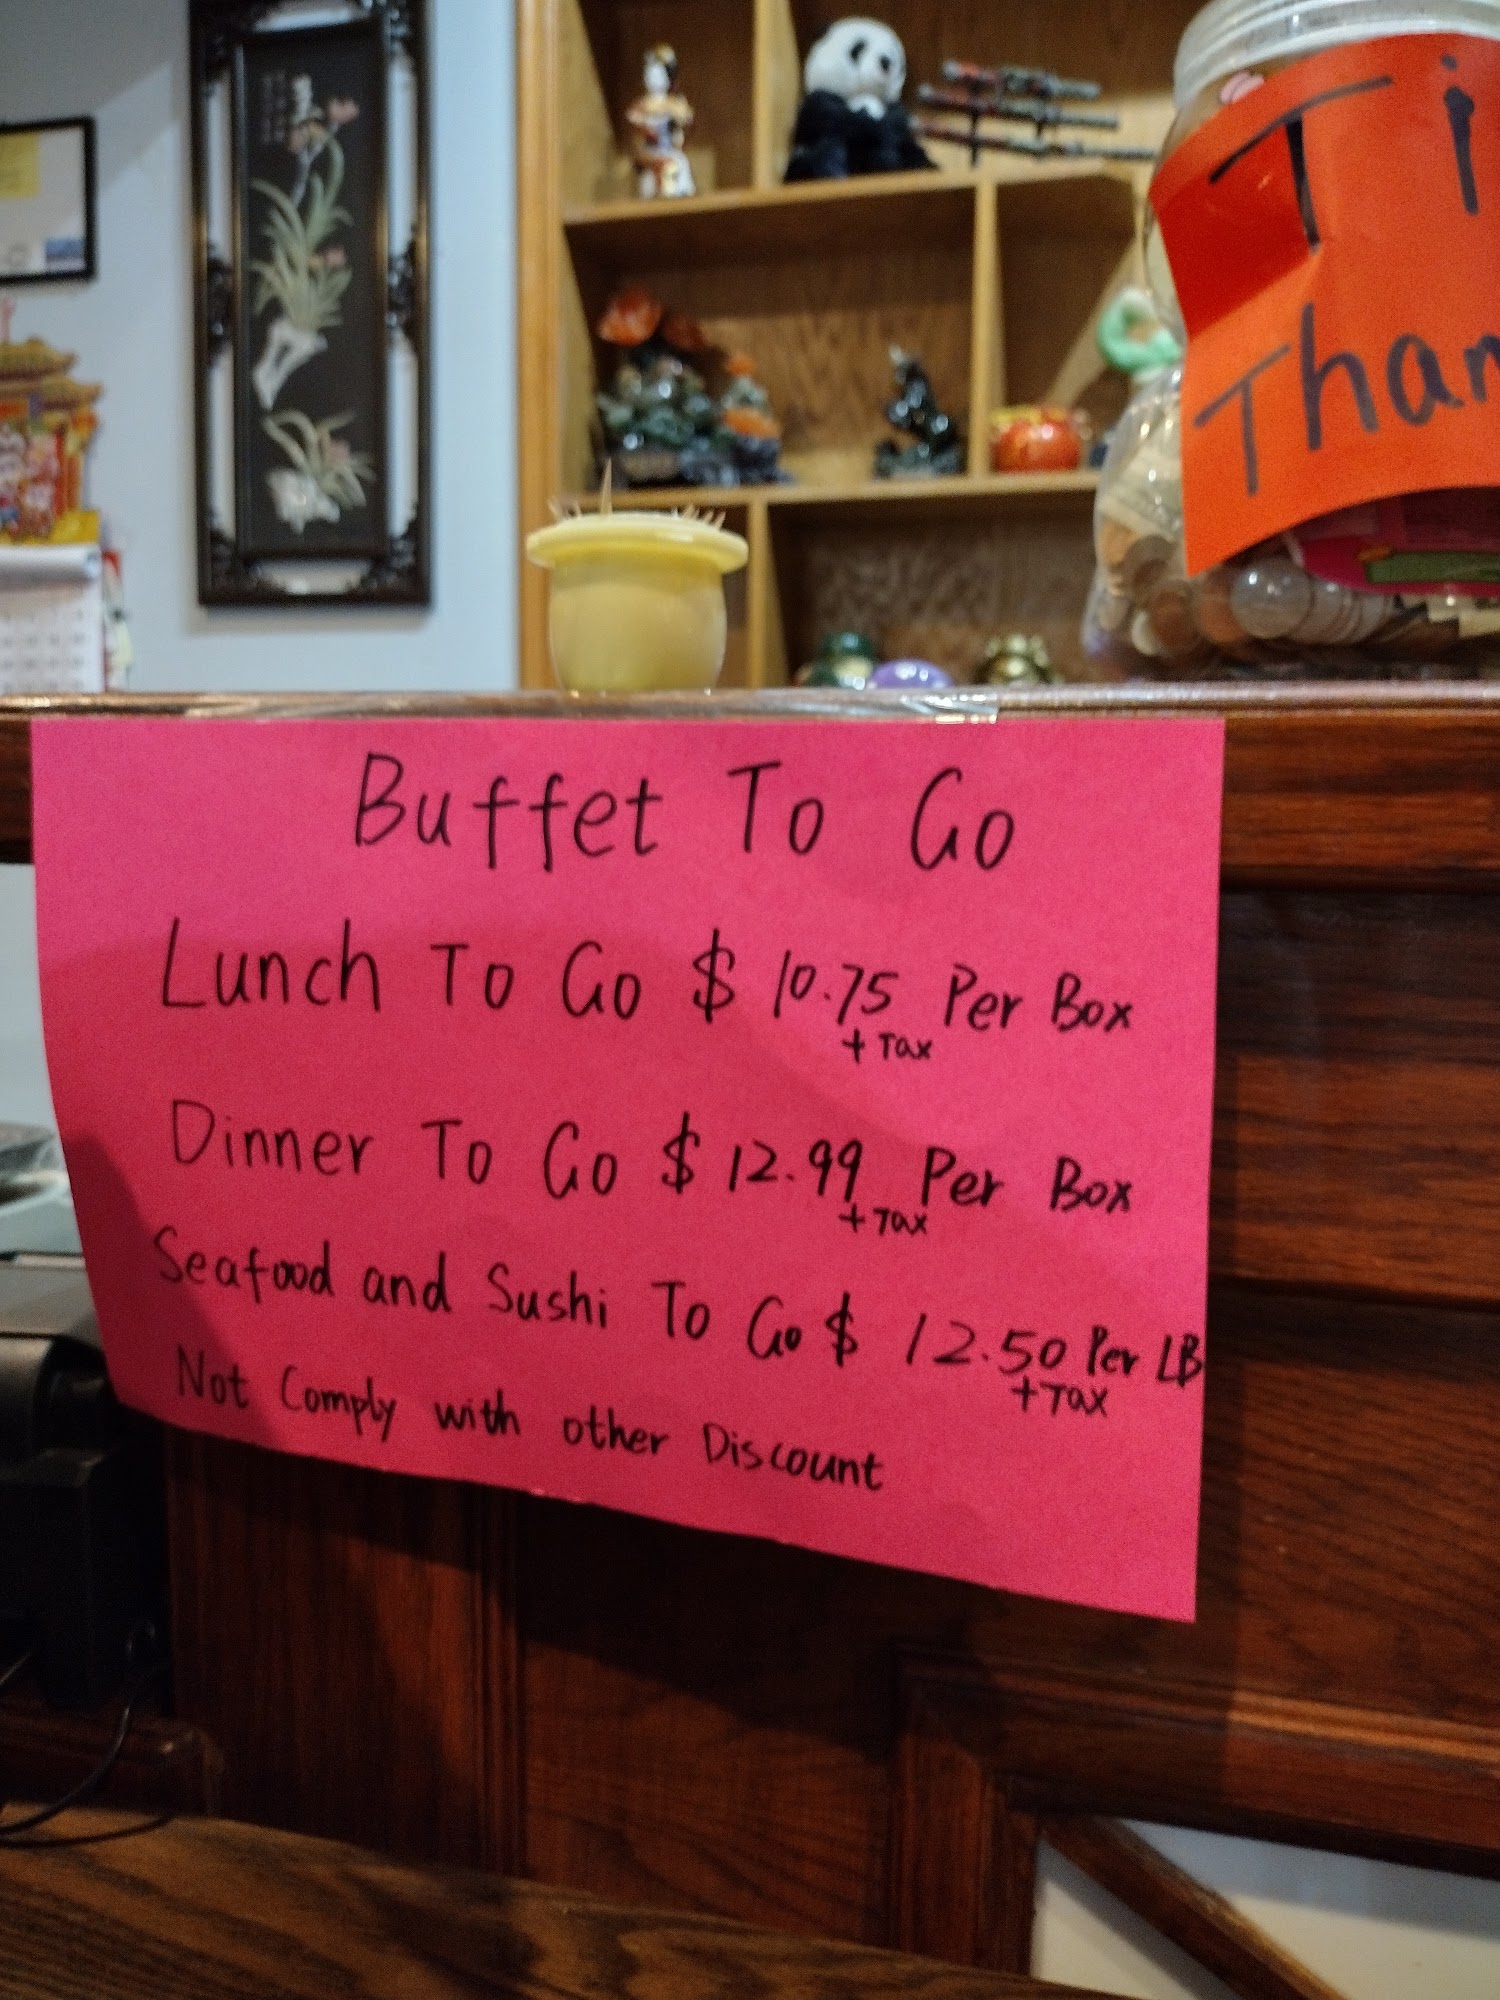 Ti
Than
Buffet To Go
Lunch To Go $ 10.75 Per Box
+ Tax
Dinner To Go $ 12.99 Per Box
+ Tax
Seafood and Sushi To Go $ 12.50 Per LB
+ Tax
Not Comply with other Discount